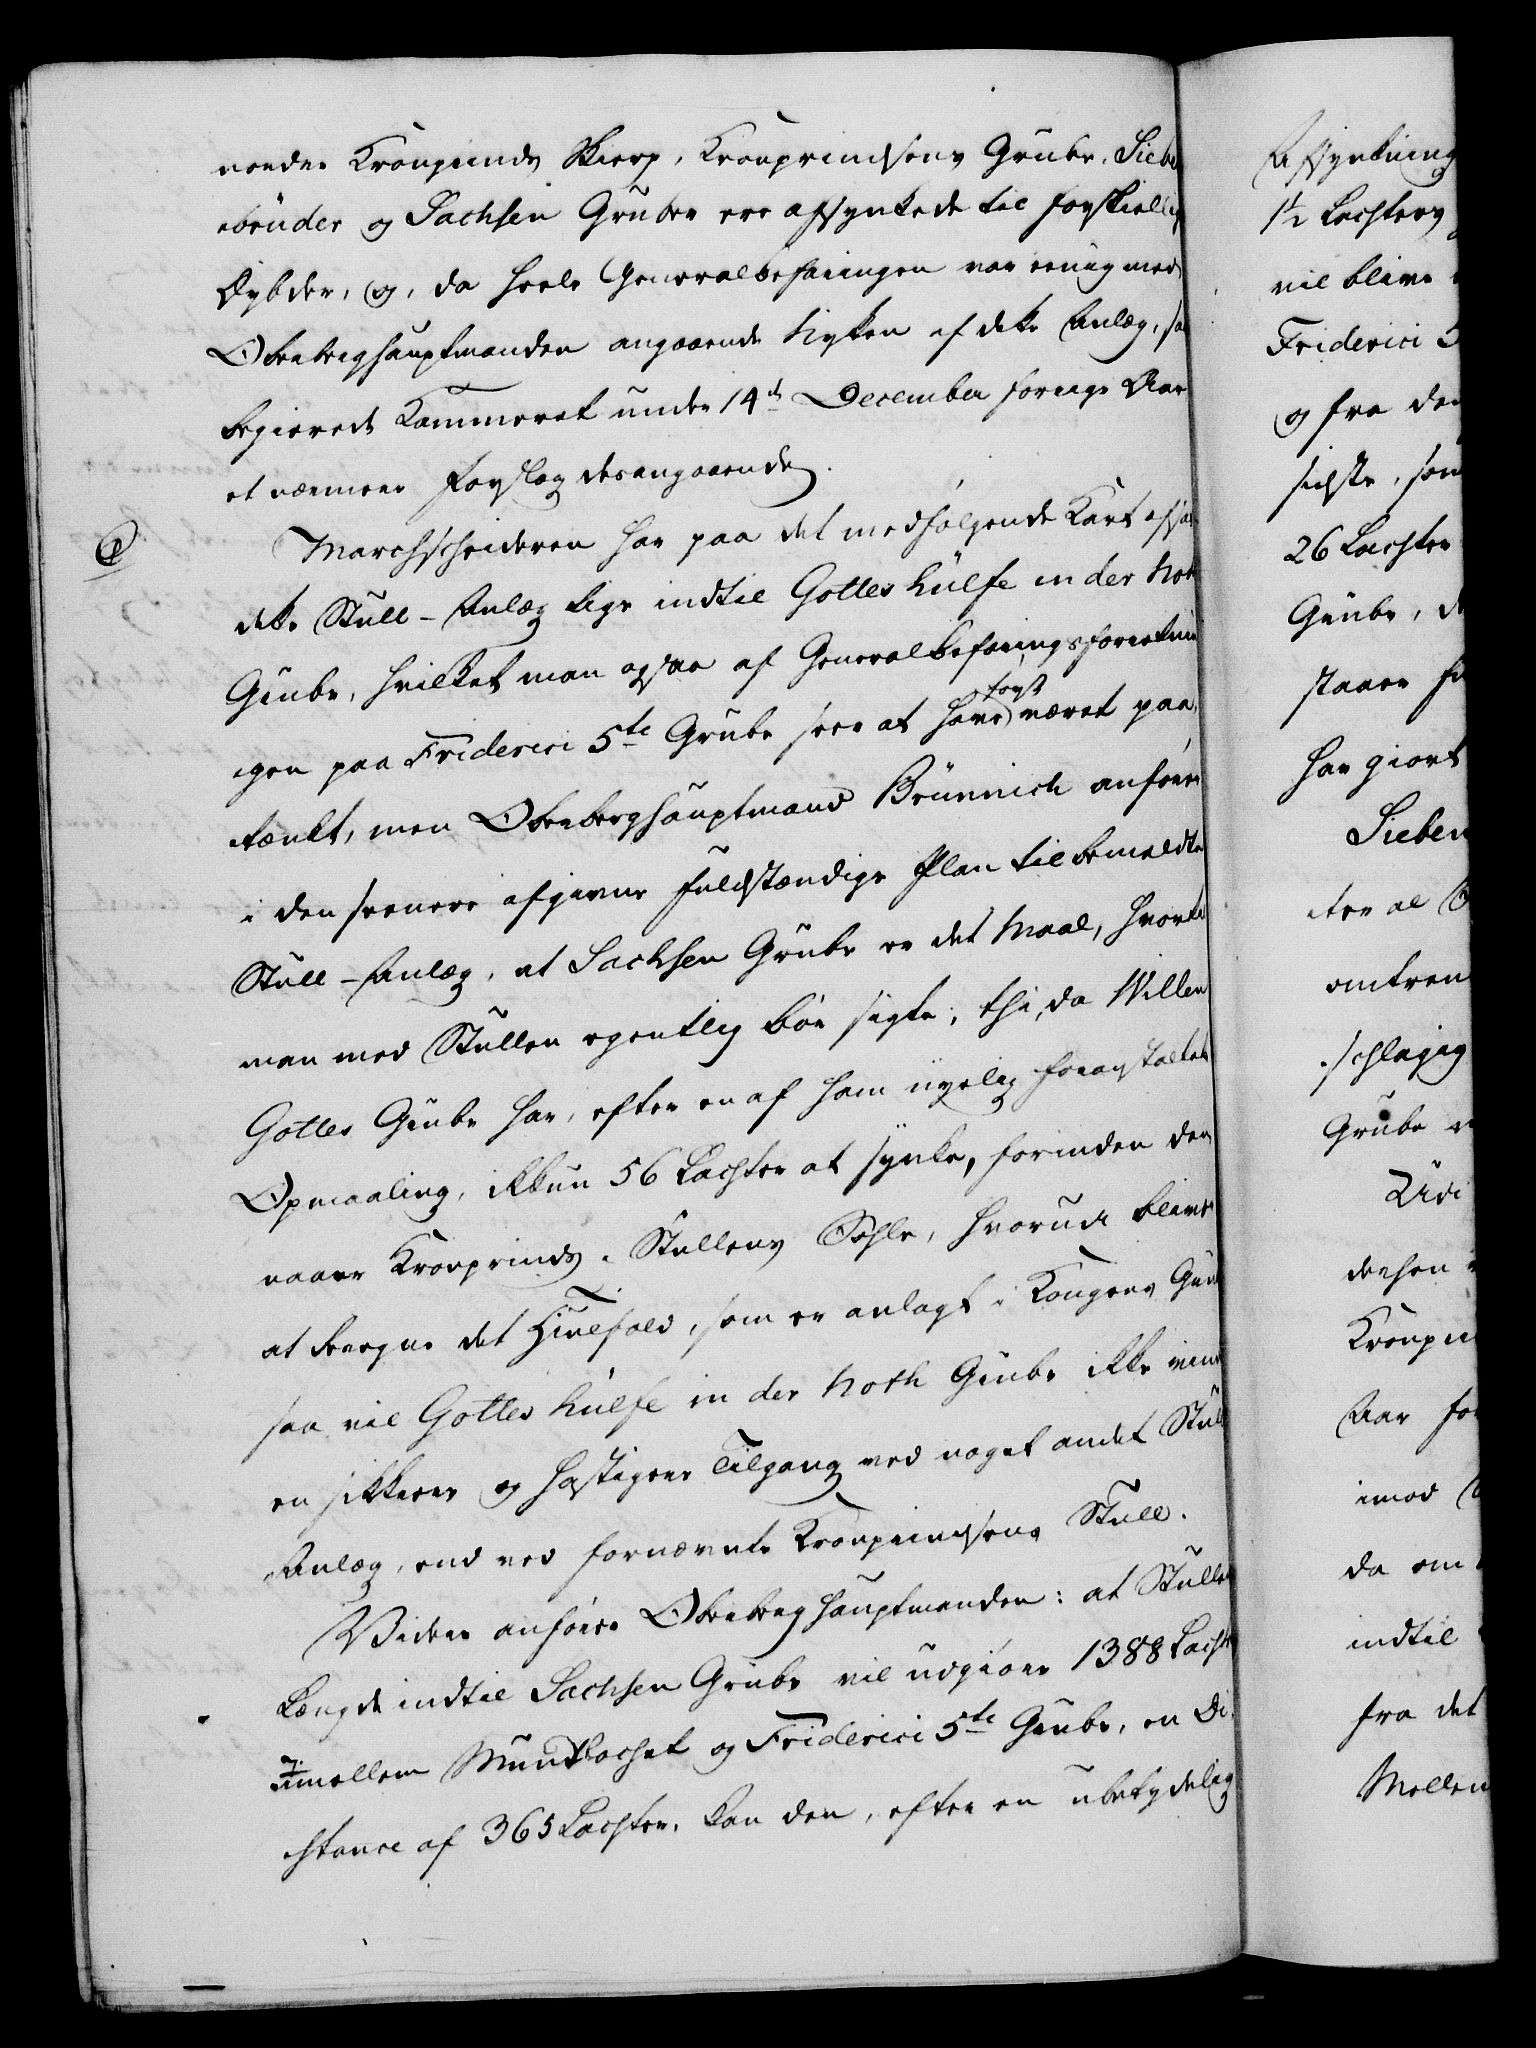 nordre Kronprinds Skierp, Kronprindsens Grube, Siebe
brüder og Sachsen Gruber ere afsynkede til forskiellig
Dybder, og, da heele Generalbefaringen var eenig med
Oberberghauptmanden angaaende Nytten af dette Anlæg, saa
begierede Kammeret under 14de December forrige Aar
et nærmere Forslag desangaaende.
Marchscheideren har paa det medfølgende Kart afsat
dette Stoll-Anlæg lige indtil Gottes Hülfe in der Noth
Grube, hvilket man ogsaa af Generalbefaringsforretnin
gen paa Friderici 5te Grube seer at have først været paa
tænkt, men Oberberghauptmand Brünnich anfører
i den seenere afgivne fuldstændige Plan til bemeldte
Stoll-Anlæg, at Sachsen Grube er det Maal, hvortil
man med Stollen egentlig bør sigte; thi, da Willen
Gottes Grube har, efter en af ham nyelig foranstaltet
Opmaaling, ikkun 56 Lachter at synke, forinden den
naaer Kronprinds Stollens Sohle, hvorudi bliver
at beregne det Hiulfald, som er anlagt i Kongens Grube
saa vil Gottes Hülfe in der Noth Grube ikke vinde
en sikkrere og hastigere Tilgang ved noget andet Stoll
Anlæg, end ved fornævnte Kronprindsens Stoll.
Videre anfører Oberberghauptmanden: at Stollens
Længde indtil Sachsen Grube vil udgiøre 1388 Lachter
imellem Mundlochet og Friderici 5te Grube, en Di
stance af 365 Lachter, kan den, efter en ubetydelig
Afsynkning
1½ Lachters
vil blive
Friderici 5
og fra den
sidste, som
26 Lachter
Grube, d
staaer fo
har giort
Sieben
ter al
omtren
schlagig
Grube
Udi
densen
Kronpri
Aar for
imod
da om
indtil
fra det
Mellem